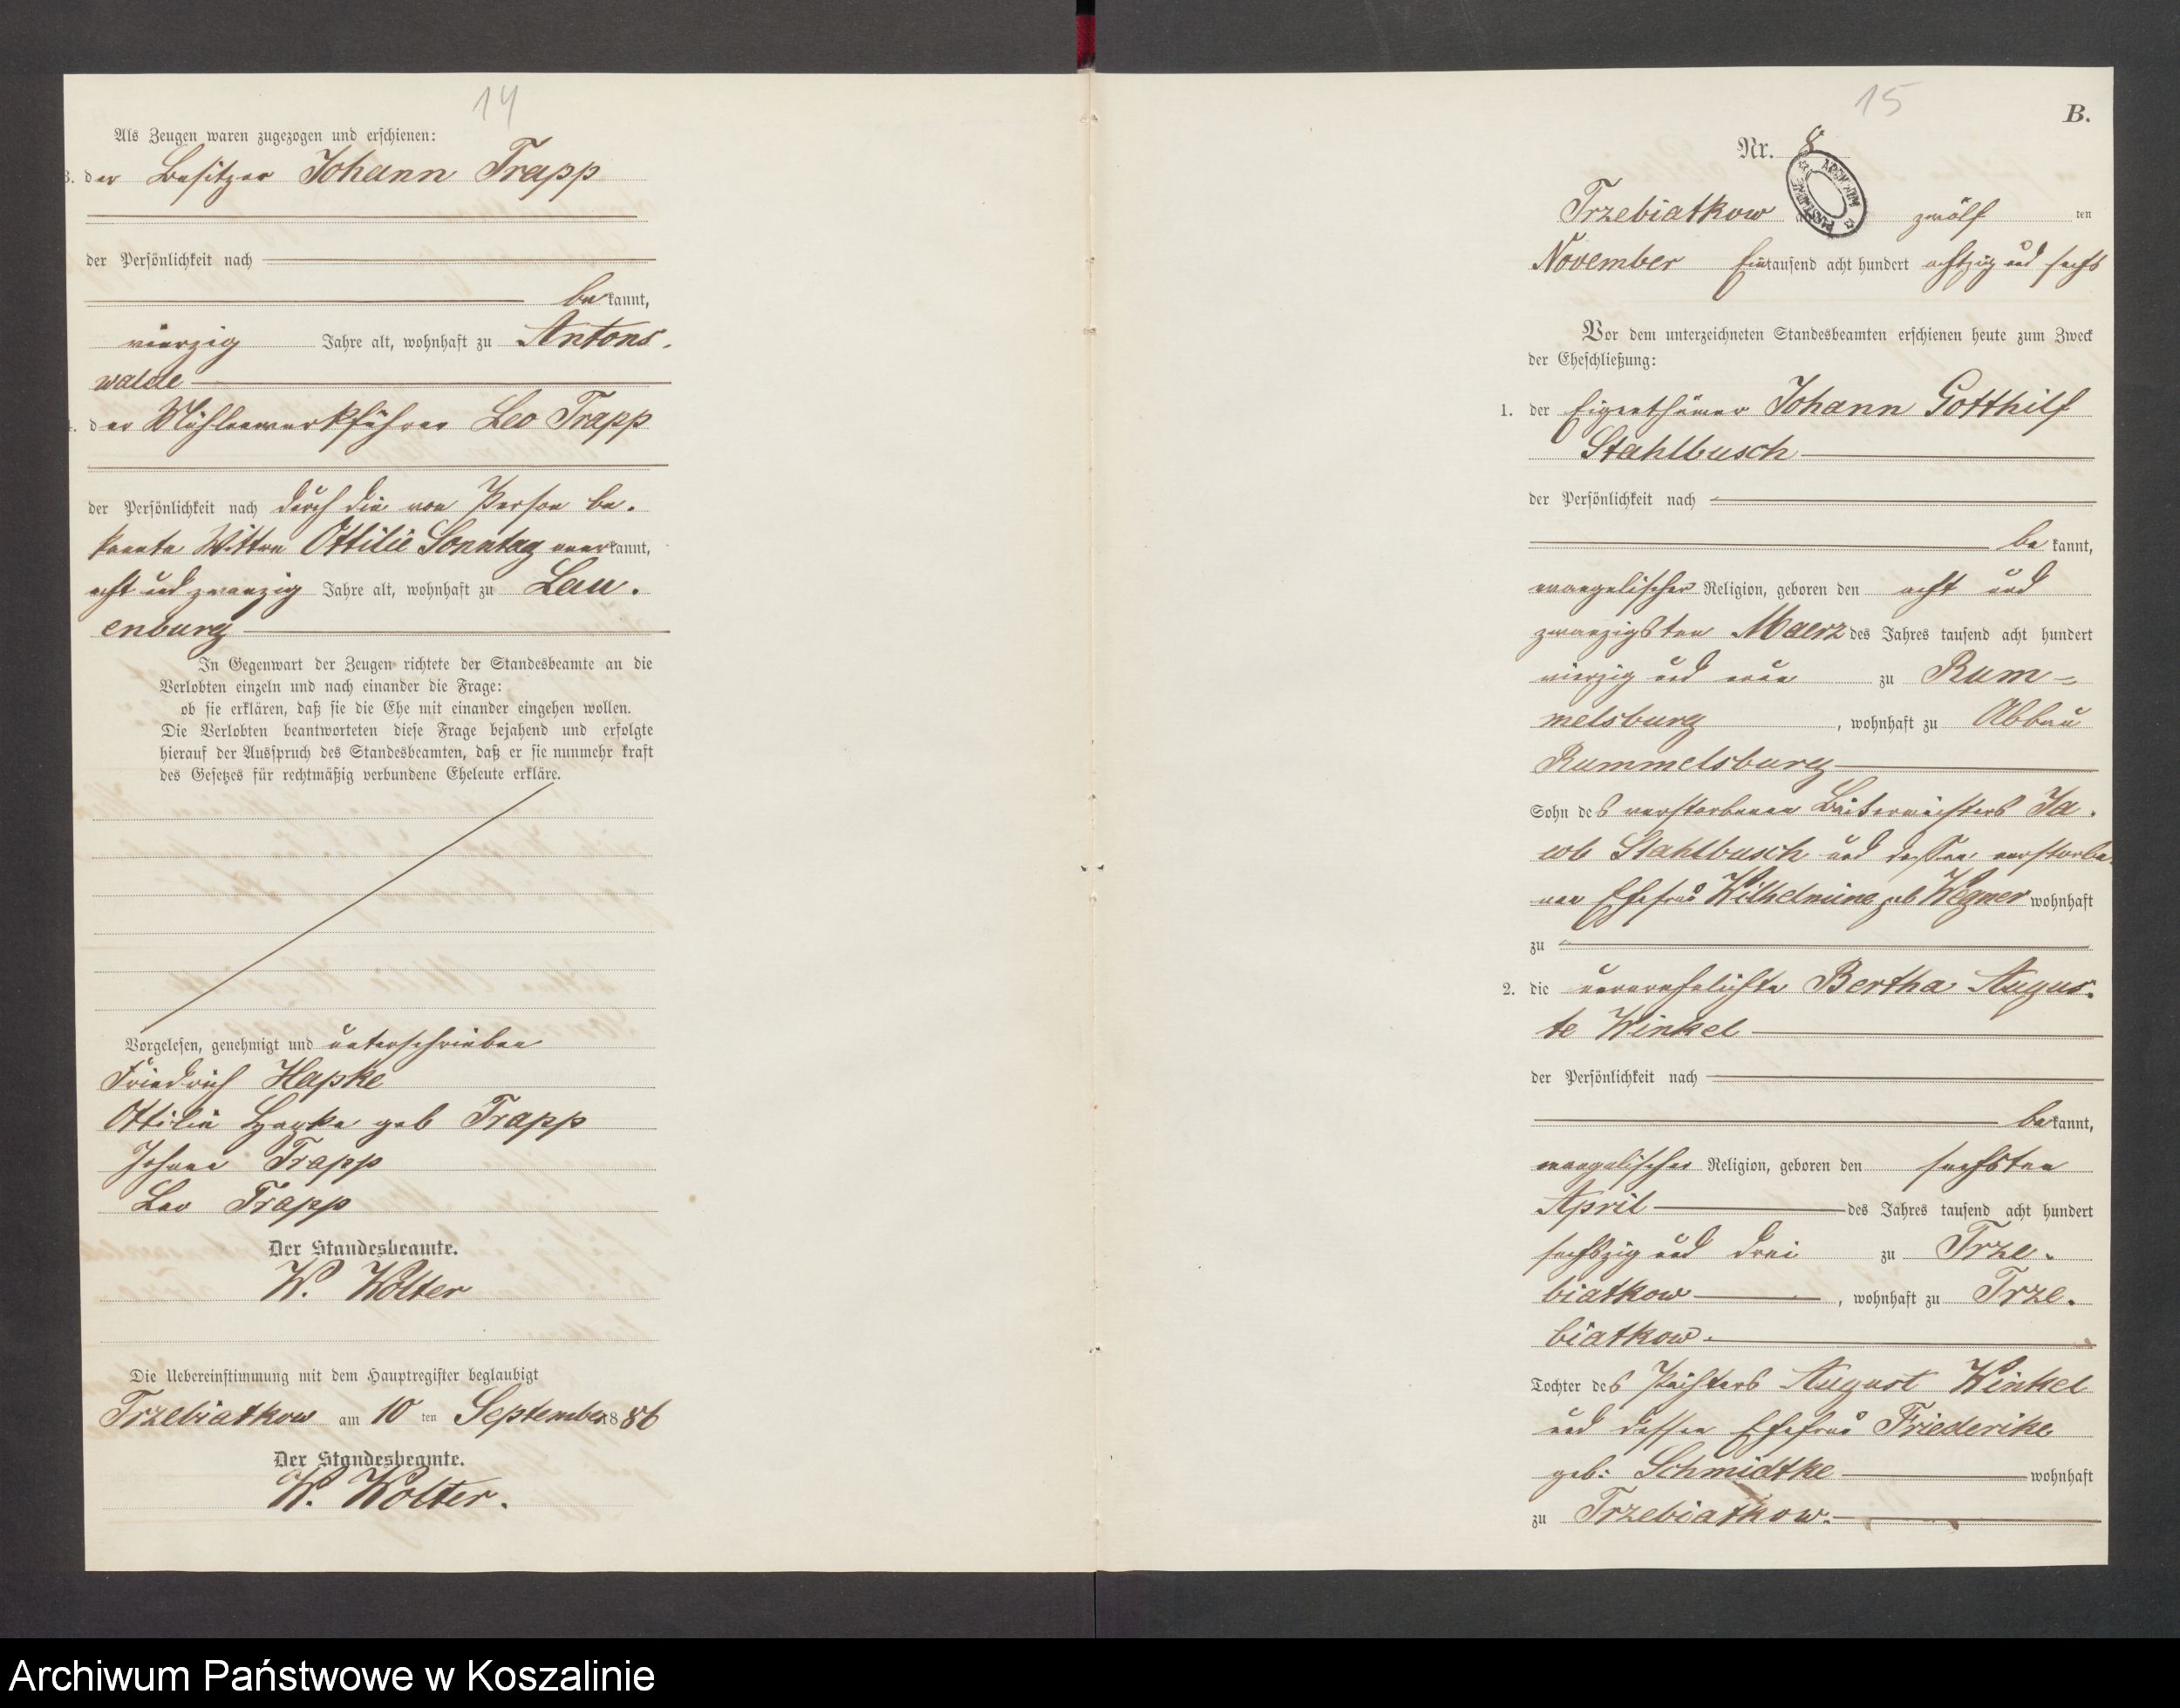 14
Als Zeugen waren zugezogen und erschienen:
3. der Besitzer Johann Trapp
der Persönlichkeit nach
bekannt,
vierzig Jahre alt, wohnhaft zu Antons-
walde
4. der Mühlenwerkführer Leo Trapp
der Persönlichkeit nach durch die von Person be-
kannte Wittwe Ottilie Sonntag anerkannt,
acht und zwanzig Jahre alt, wohnhaft zu Lau-
enburg
In Gegenwart der Zeugen richtete der Standesbeamte an die
Verlobten einzeln und nach einander die Frage:
ob sie erklären, daß sie die Ehe mit einander eingehen wollen.
Die Verlobten beantworteten diese Frage bejahend und erfolgte
hierauf der Ausspruch des Standesbeamten, daß er sie nunmehr kraft
des Gesetzes für rechtmäßig verbundene Eheleute erkläre.
Vorgelesen, genehmigt und unterschrieben
Friedrich Hapke
Ottilie Hapke geb Trapp
Johann Trapp
Leo Trapp
Der Standesbeamte.
W. Wolter
Die Uebereinstimmung mit dem Hauptregister beglaubigt
Trzebiatkow am 10 ten September 1886
Der Standesbeamte.
W. Wolter.
15
B.
Nr. 8
Trzebiatkow zwölf ten
November Eintausend acht hundert achtzig und sechs
Vor dem unterzeichneten Standesbeamten erschienen heute zum Zweck
der Eheschließung:
1. der Eigenthümer Johann Gotthilf
Stahlbusch
der Persönlichkeit nach
bekannt,
evangelischer Religion, geboren den acht und
zwanzigsten Maerz des Jahres tausend acht hundert
vierzig und neun zu Rum-
melsburg, wohnhaft zu Abbau
Rummelsburg
Sohn des verstorbenen Ja-
cob Stahlbusch und dessen verstorbe-
nen Ehefrau Wilhelmine geb Wegner wohnhaft
zu
2. die unverehelichte Bertha Augus-
te Winkel
der Persönlichkeit nach
bekannt,
evangelischer Religion, geboren den sechsten
April des Jahres tausend acht hundert
sechszig und drei zu Trze-
biatkow, wohnhaft zu Trze-
biatkow.
Tochter des Pächters August Winkel
und dessen Ehefrau Friederike
geb: Schmidtke wohnhaft
zu Trzebiatkow.
Archiwum Państwowe w Koszalinie